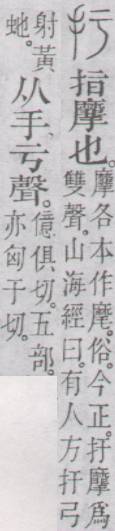 扜指摩也。摩各本作麾。俗。今正。扜摩爲雙聲。山海經曰。有人方扜弓
射黃虵。从手亏聲。億俱切。五部。亦匈于切。